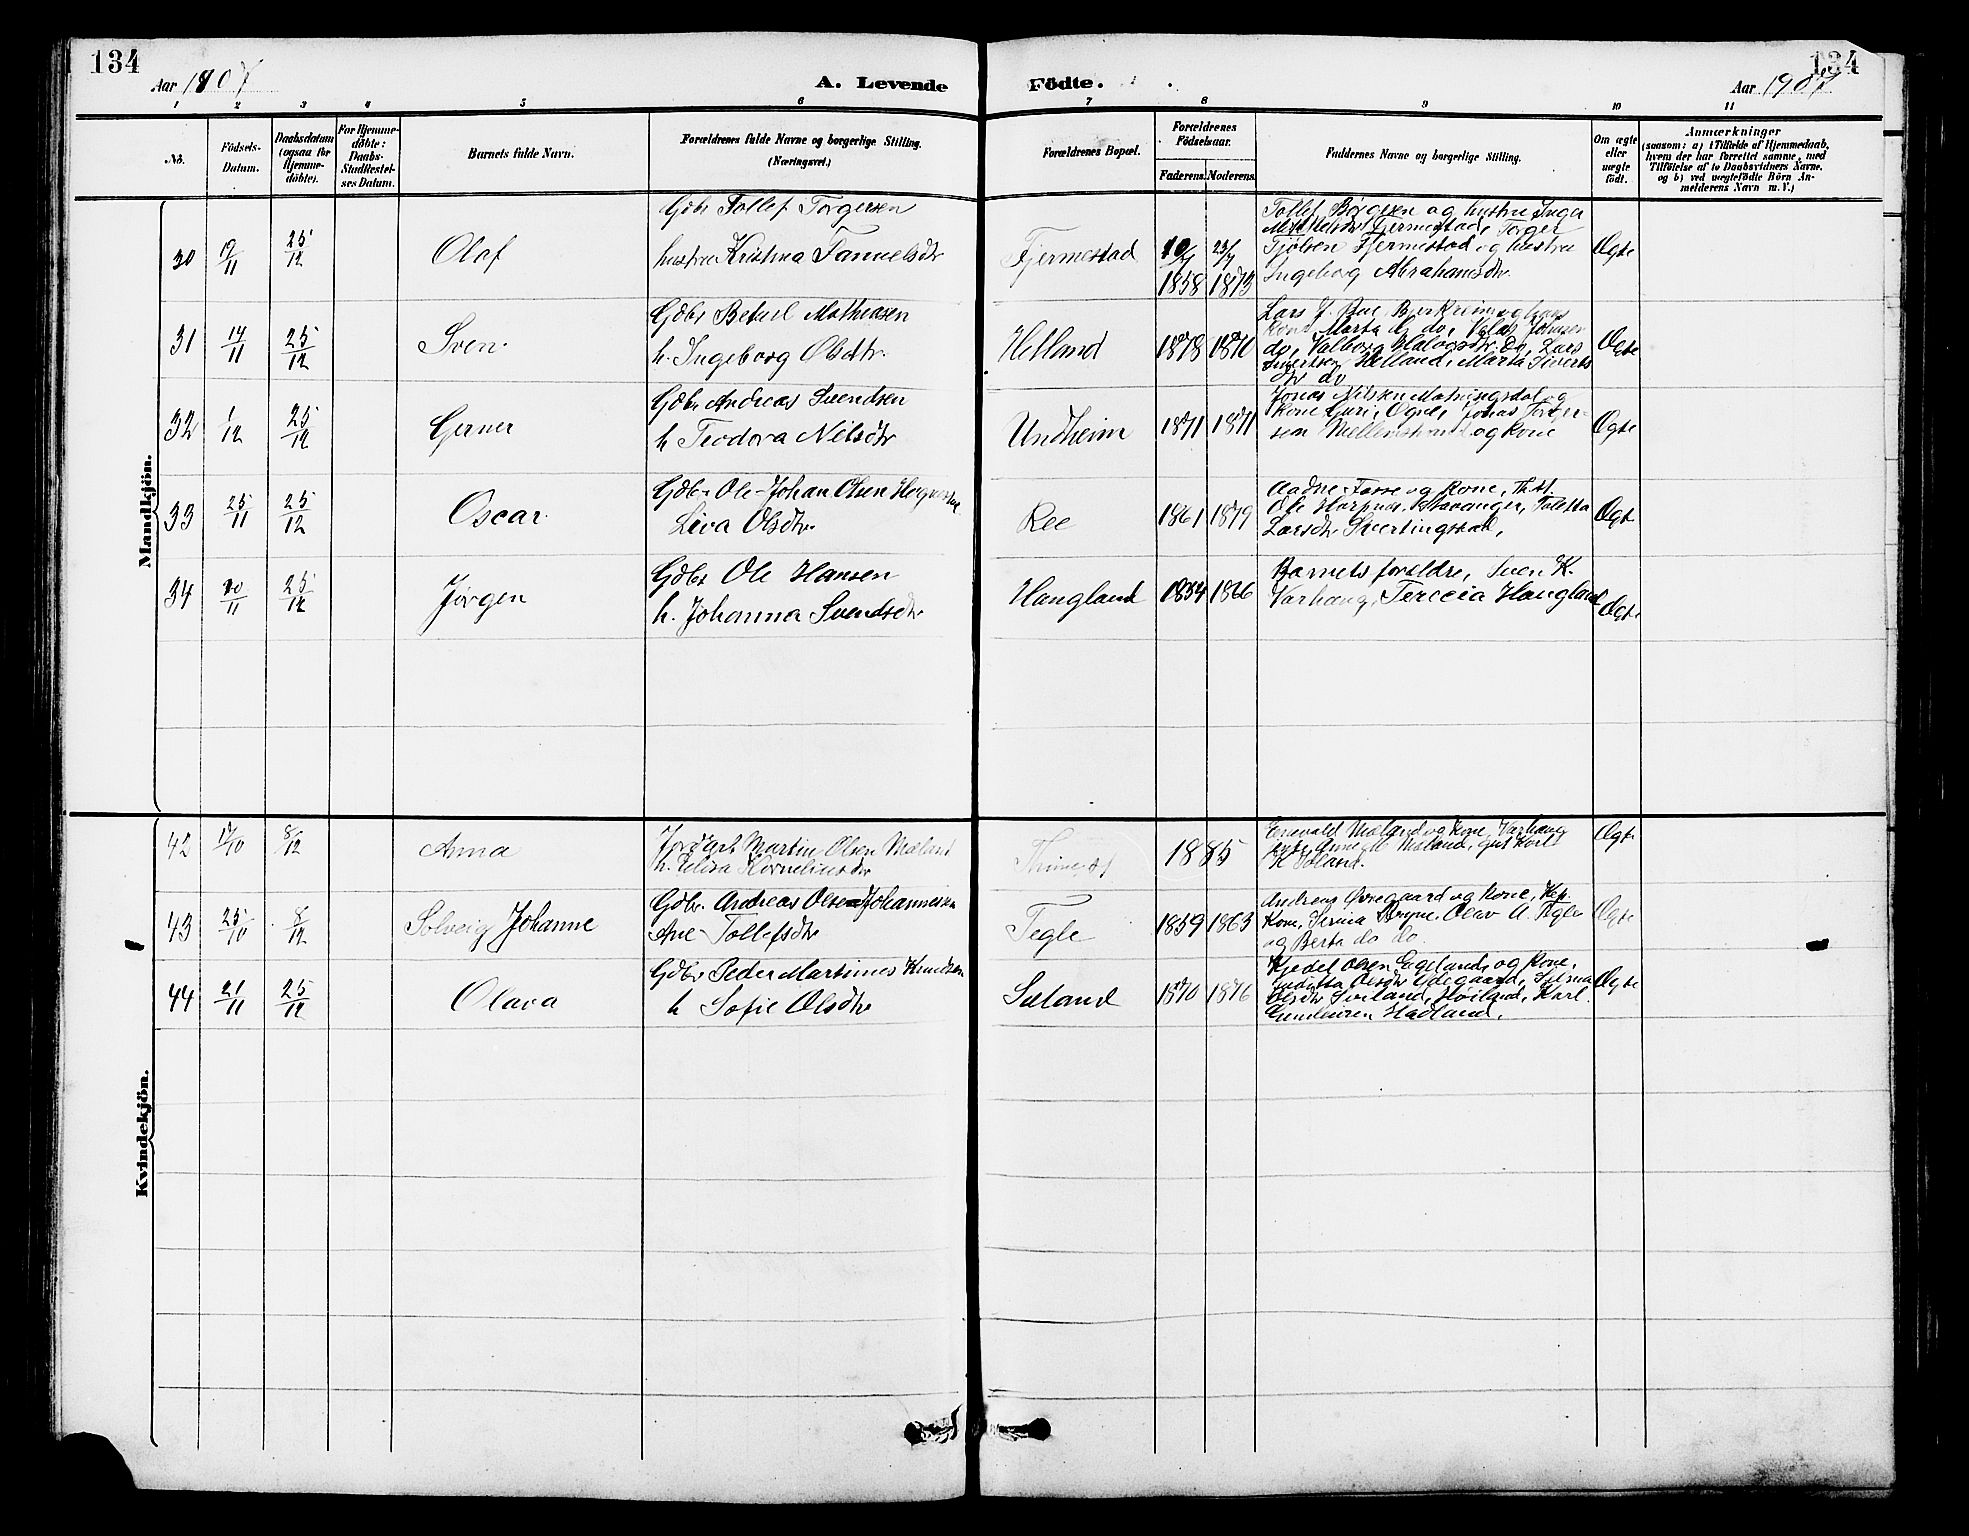 134
134
Aar 1907
A. Levende Födte.
Aar 1907
1 2 3 4 5 6 7 8 9 10 11
No.
Födsels-Datum.
Daabsdatum (ogsaa for Hjemme-döbte).
For Hjemme-döbte: Daabs-Stadfestel-ses Datum.
Barnets fulde Navn.
Forældrenes fulde Navne og borgerlige Stilling. (Næringsvei.)
Forældrenes Bopæl.
Forældrenes Födselsaar.
Faderens. Moderens.
Faddernes Navne og borgerlige Stilling.
Om ægte eller uægte födt.
Anmærkninger
(saasom: a) i Tilfælde af Hjemmedaab,
hvem der har forrettet samme, med
Tilföielse af to Daabsvidners Navne,
og b) ved uægtefödte Börn An-
melderens Navn m. V.)
Mandkjön.
30 19/11 25/12 Olaf
Gdbr Tollef Torgersen
hustru Kristina Samuelsdtr
Fjermestad
10/4 1858 23/7 1873
Tollef Börgesen og hustru Inger
Fjermestad, Torger
Tjölsen Fjermestad og hustru
Ingeborg Abrahamsdtr.
Ægte
31 14/11 25/12 Sven
Gdbr Betuel Mathiasen
h. Ingeborg Olsdtr.
Helland
1878 1870
Lars J. Bue, Bjerkreim og hans
Kone Marta do,
do, Valborg do, Lars
Sivertsen Helland, Marta Siverts
dtr do
Ægte
32 1/12 25/12 Gerner
Gdbr Andreas Svendsen
h Teodora Nilsdtr
Undheim
1871 1871
Jonas Nilsen Matningsdal og
Kone Guri, Ogne, Jonas Torger-
sen Mellemstrand og Kone
Ægte
33 25/11 25/12 Oscar
Gdbr Ole Johan Olsen Hognestad
Liva Olsdtr
Ree
1861 1879
Aadne Fosse og Kone, Th.st.
Ole Stavanger, Toletta
Larsdtr Svertingstad,
Ægte
34 20/11 25/12 Jörgen
Gdbr Ole Hansen
h. Johanna Svendsdtr
Haugland
1854 1866
Barnets foreldre, Sven K.
Varhaug, Terecia Haugland
Ægte
Kvindekjön.
42 17/10 8/12 Anna
Martin Olsen Mæland
h. Korneliusdtr
1885
Enevald Mæland og Kone, Varhaug
Mæland, gut Karl
K
Ægte
43 25/10 8/12 Solveig Johanne
Gdbr. Andreas Olsen Johannesen
Ane Tollefsdtr
Tegle
1859 1863
Andreas Övregaard og Kone, Klep
Kone, Serina Bryne, Olav A. Tegle
og Berta do do.
Ægte
44 21/11 25/12 Olava
Gdbr Peder Martinus Knudsen
h Sofie Olsdtr
Sæland
1870 1876
Kjedel Olsen Egeland og Kone,
Olsdtr Ødegaard, Selma
Olsdtr Høiland, Karl
Gundersen Hadland,
Ægte